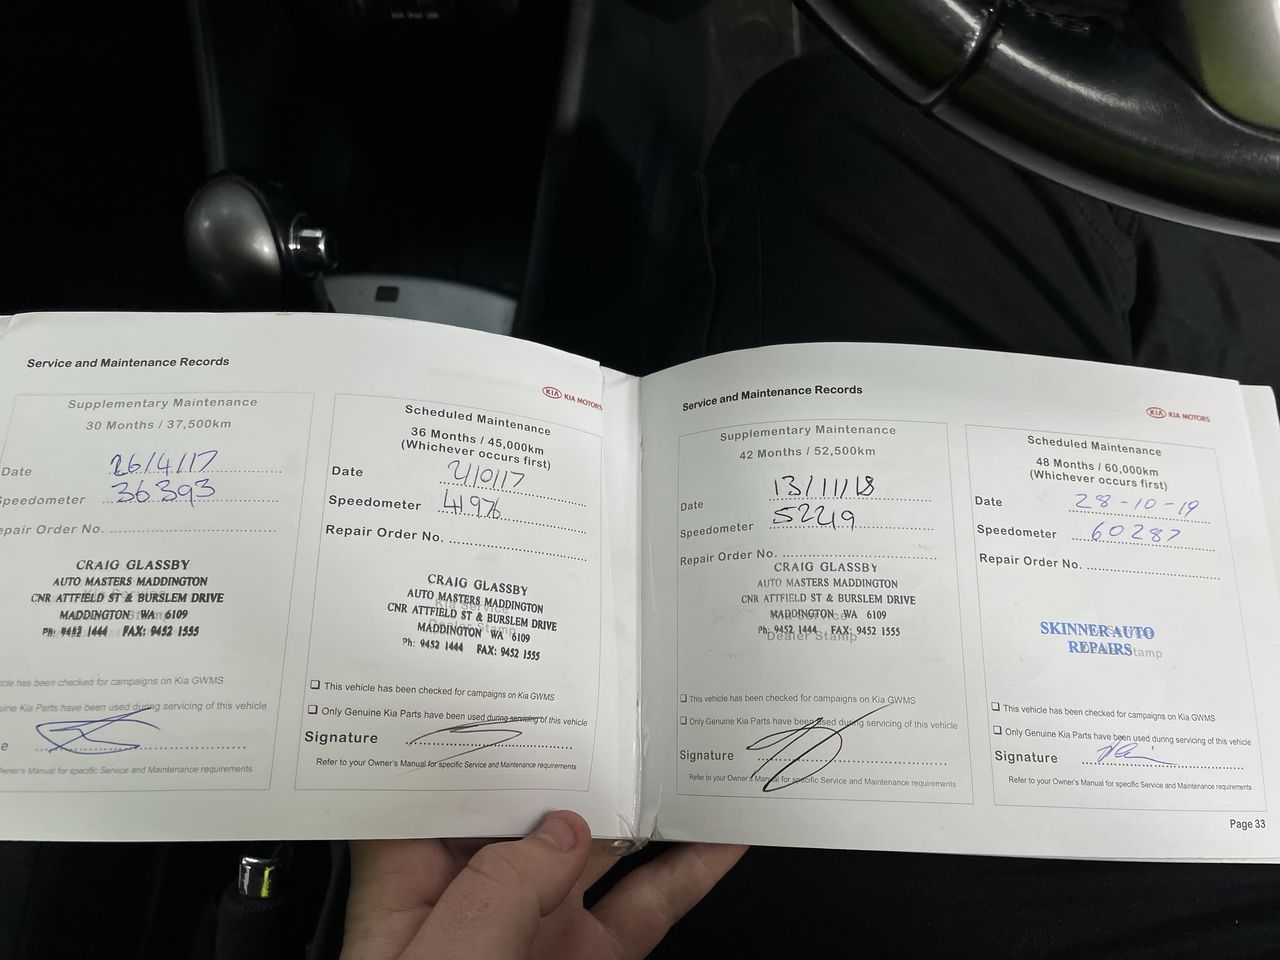 Service and Maintenance Records
KIA KIA MOTORS
Supplementary Maintenance
30 Months / 37,500km
Date 26/4/17
Speedometer 36393
epair Order No.
CRAIG GLASSBY
AUTO MASTERS MADDINGTON
CNR ATTFIELD ST & BURSLEM DRIVE
MADDINGTON WA 6109
Ph: 9452 1444 FAX: 9452 1555
icle has been checked for campaigns on Kia GWMS
uine Kia Parts have been used during servicing of this vehicle
e
Owner's Manual for specific Service and Maintenance requirements
Scheduled Maintenance
36 Months / 45,000km
(Whichever occurs first)
Date 2/10/17
Speedometer 41976
Repair Order No.
CRAIG GLASSBY
AUTO MASTERS MADDINGTON
Kia Service
CNR ATTFIELD ST & BURSLEM DRIVE
Dealer Stamp
MADDINGTON WA 6109
Ph: 9452 1444 FAX: 9452 1555
This vehicle has been checked for campaigns on Kia GWMS
Only Genuine Kia Parts have been used during servicing of this vehicle
Signature
Refer to your Owner's Manual for specific Service and Maintenance requirements
Service and Maintenance Records
KIA KIA MOTORS
Supplementary Maintenance
42 Months / 52,500km
Date 13/11/18
Speedometer 52219
Repair Order No.
CRAIG GLASSBY
AUTO MASTERS MADDINGTON
CNR ATTFIELD ST & BURSLEM DRIVE
MADDINGTON WA 6109
Ph: 9452 1444 FAX: 9452 1555
Dealer Stamp
This vehicle has been checked for campaigns on Kia GWMS
Only Genuine Kia Parts have been used during servicing of this vehicle
Signature
Refer to your Owner's Manual for specific Service and Maintenance requirements
Scheduled Maintenance
48 Months / 60,000km
(Whichever occurs first)
Date 28-10-19
Speedometer 60287
Repair Order No.
SKINNER AUTO
REPAIRS
This vehicle has been checked for campaigns on Kia GWMS
Only Genuine Kia Parts have been used during servicing of this vehicle
Signature
Refer to your Owner's Manual for specific Service and Maintenance requirements
Page 33